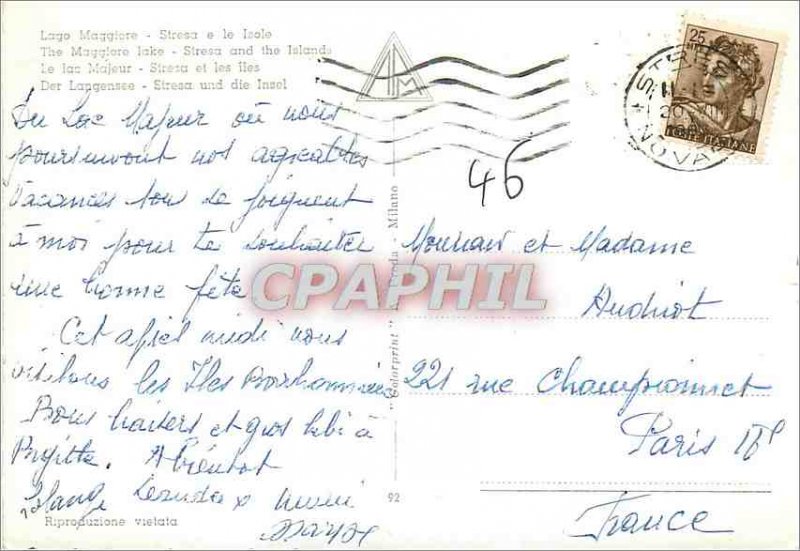 Lago Maggiore - Stresa e le Isole
The Maggiore lake - Stresa and the Islands
Le lac Majeur - Stresa et les îles
Der Langensee - Stresa und die Insel
Du Lac Majeur où nous
poursuivont nos agréables
Vacances tous se joignent
à moi pour te souhaiter
une bonne fête
Cet après midi nous
visitons les Îles Borromées
Bons baisers et gros bébi à
Brigitte. A bientôt
Solange
Riproduzione vietata
92
"Colorprint" - Milano
CPARPHIL
AIM
25
POSTE ITALIANE
STRESA
NOVA
46
Monsieur et Madame
Audriot
221 rue Championnet
Paris 18e
France